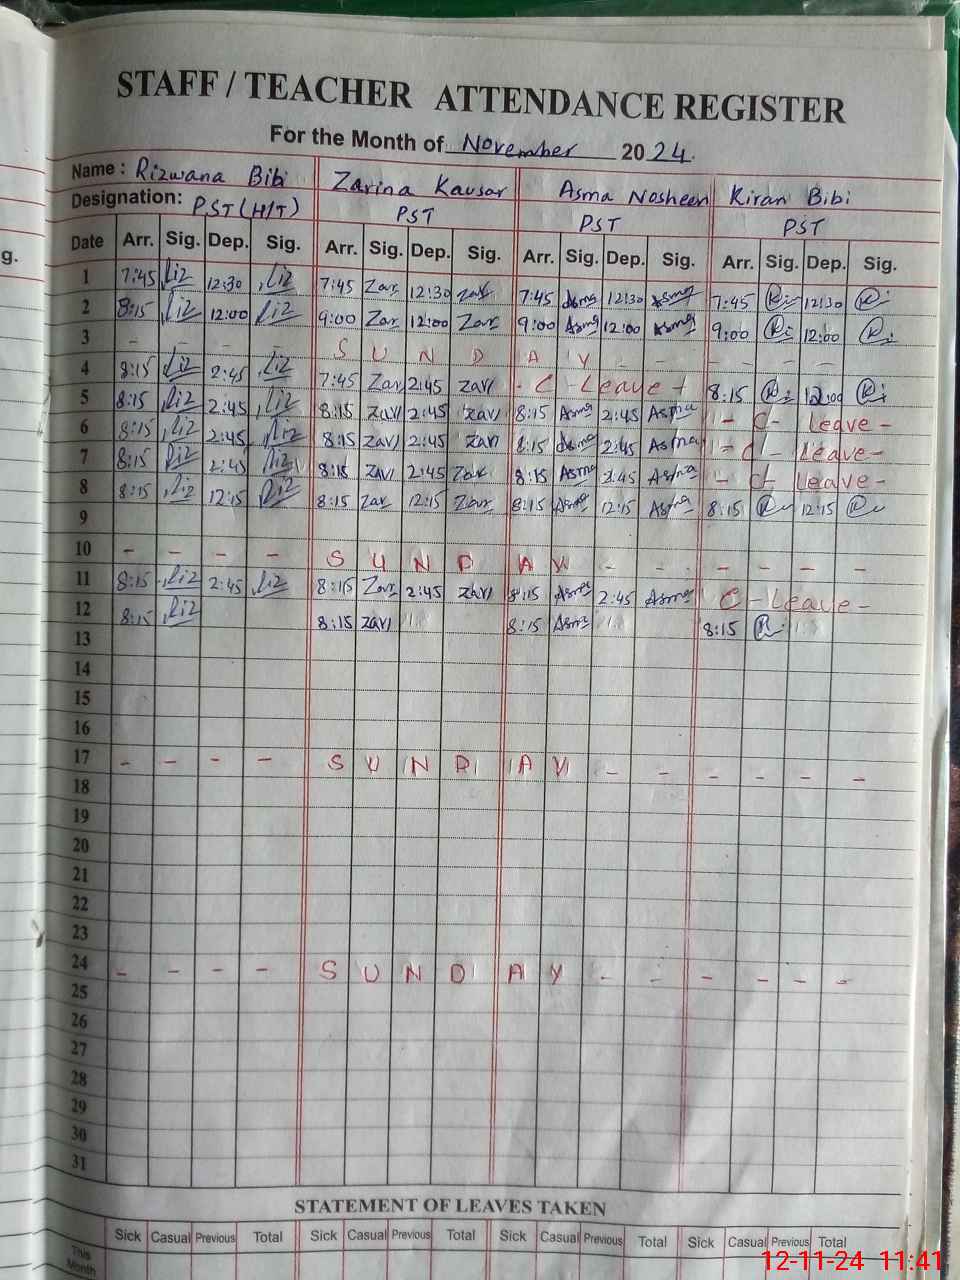 STAFF / TEACHER ATTENDANCE REGISTER
For the Month of November 2024.
Name : Rizwana Bibi Zarina Kausar Asma Nosheen Kiran Bibi
Designation: PST (H/T) PST PST PST
Date Arr. Sig. Dep. Sig. Arr. Sig. Dep. Sig. Arr. Sig. Dep. Sig. Arr. Sig. Dep. Sig.
g.
1 7:45 Riz 12:30 Riz 7:45 Zar 12:30 Zar 7:45 Asma 12:30 Asma 7:45 12:30
2 8:15 Riz 12:00 Riz 9:00 Zar 12:00 Zar 9:00 Asma 12:00 Asma 9:00 12:00
3 - - - - S U N D A Y - - - - - -
4 8:15 Riz 2:45 Riz 7:45 Zar 2:45 Zar - C - Leave + 8:15 12:00
5 8:15 Riz 2:45 Riz 8:15 Zar 2:45 Zar 8:15 Asma 2:45 Asma - C - Leave -
6 8:15 Riz 2:45 Riz 8:15 Zar 2:45 Zar 8:15 Asma 2:45 Asma - C - Leave -
7 8:15 Riz 2:45 Riz 8:15 Zar 2:45 Zar 8:15 Asma 2:45 Asma - C - Leave -
8 8:15 Riz 12:15 Riz 8:15 Zar 12:15 Zar 8:15 Asma 12:15 Asma 8:15 12:15
9
10 - - - - S U N D A Y - - - - - -
11 8:15 Riz 2:45 Riz 8:15 Zar 2:45 Zar 8:15 Asma 2:45 Asma C - Leave -
12 8:15 Riz 8:15 Zar 8:15 Asma 8:15
13
14
15
16
17 - - - - S U N D A Y - - - - - -
18
19
20
21
22
23
24 - - - - S U N D A Y - - - - - -
25
26
27
28
29
30
31
STATEMENT OF LEAVES TAKEN
Sick Casual Previous Total Sick Casual Previous Total Sick Casual Previous Total Sick Casual Previous Total
This Month
12-11-24 11:41